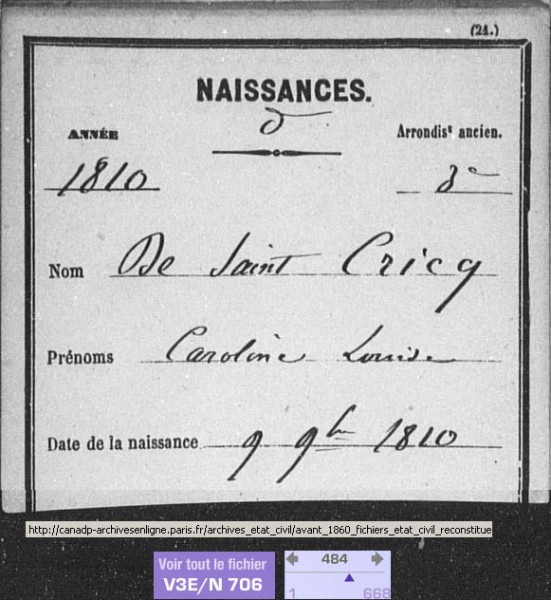 (24.)
NAISSANCES.
D
ANNÉE
Arrondis^t ancien.
1810
3^e
Nom De Saint Cricq
Prénoms Caroline Louise
Date de la naissance 9 9^bre 1810
http://canadp-archivesenligne.paris.fr/archives_etat_civil/avant_1860_fichiers_etat_civil_reconstitue
Voir tout le fichier
V3E/N 706
484
1 668